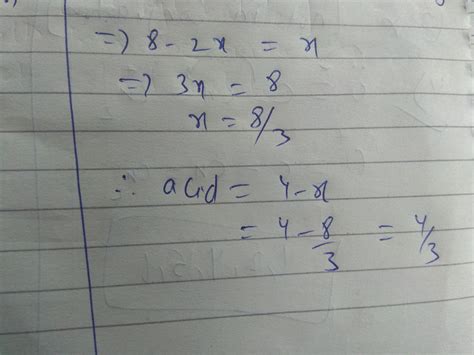 => 8 - 2x = x
=> 3x = 8
x = 8/3
∴ acid = 4 - x
= 4 - 8/3 = 4/3